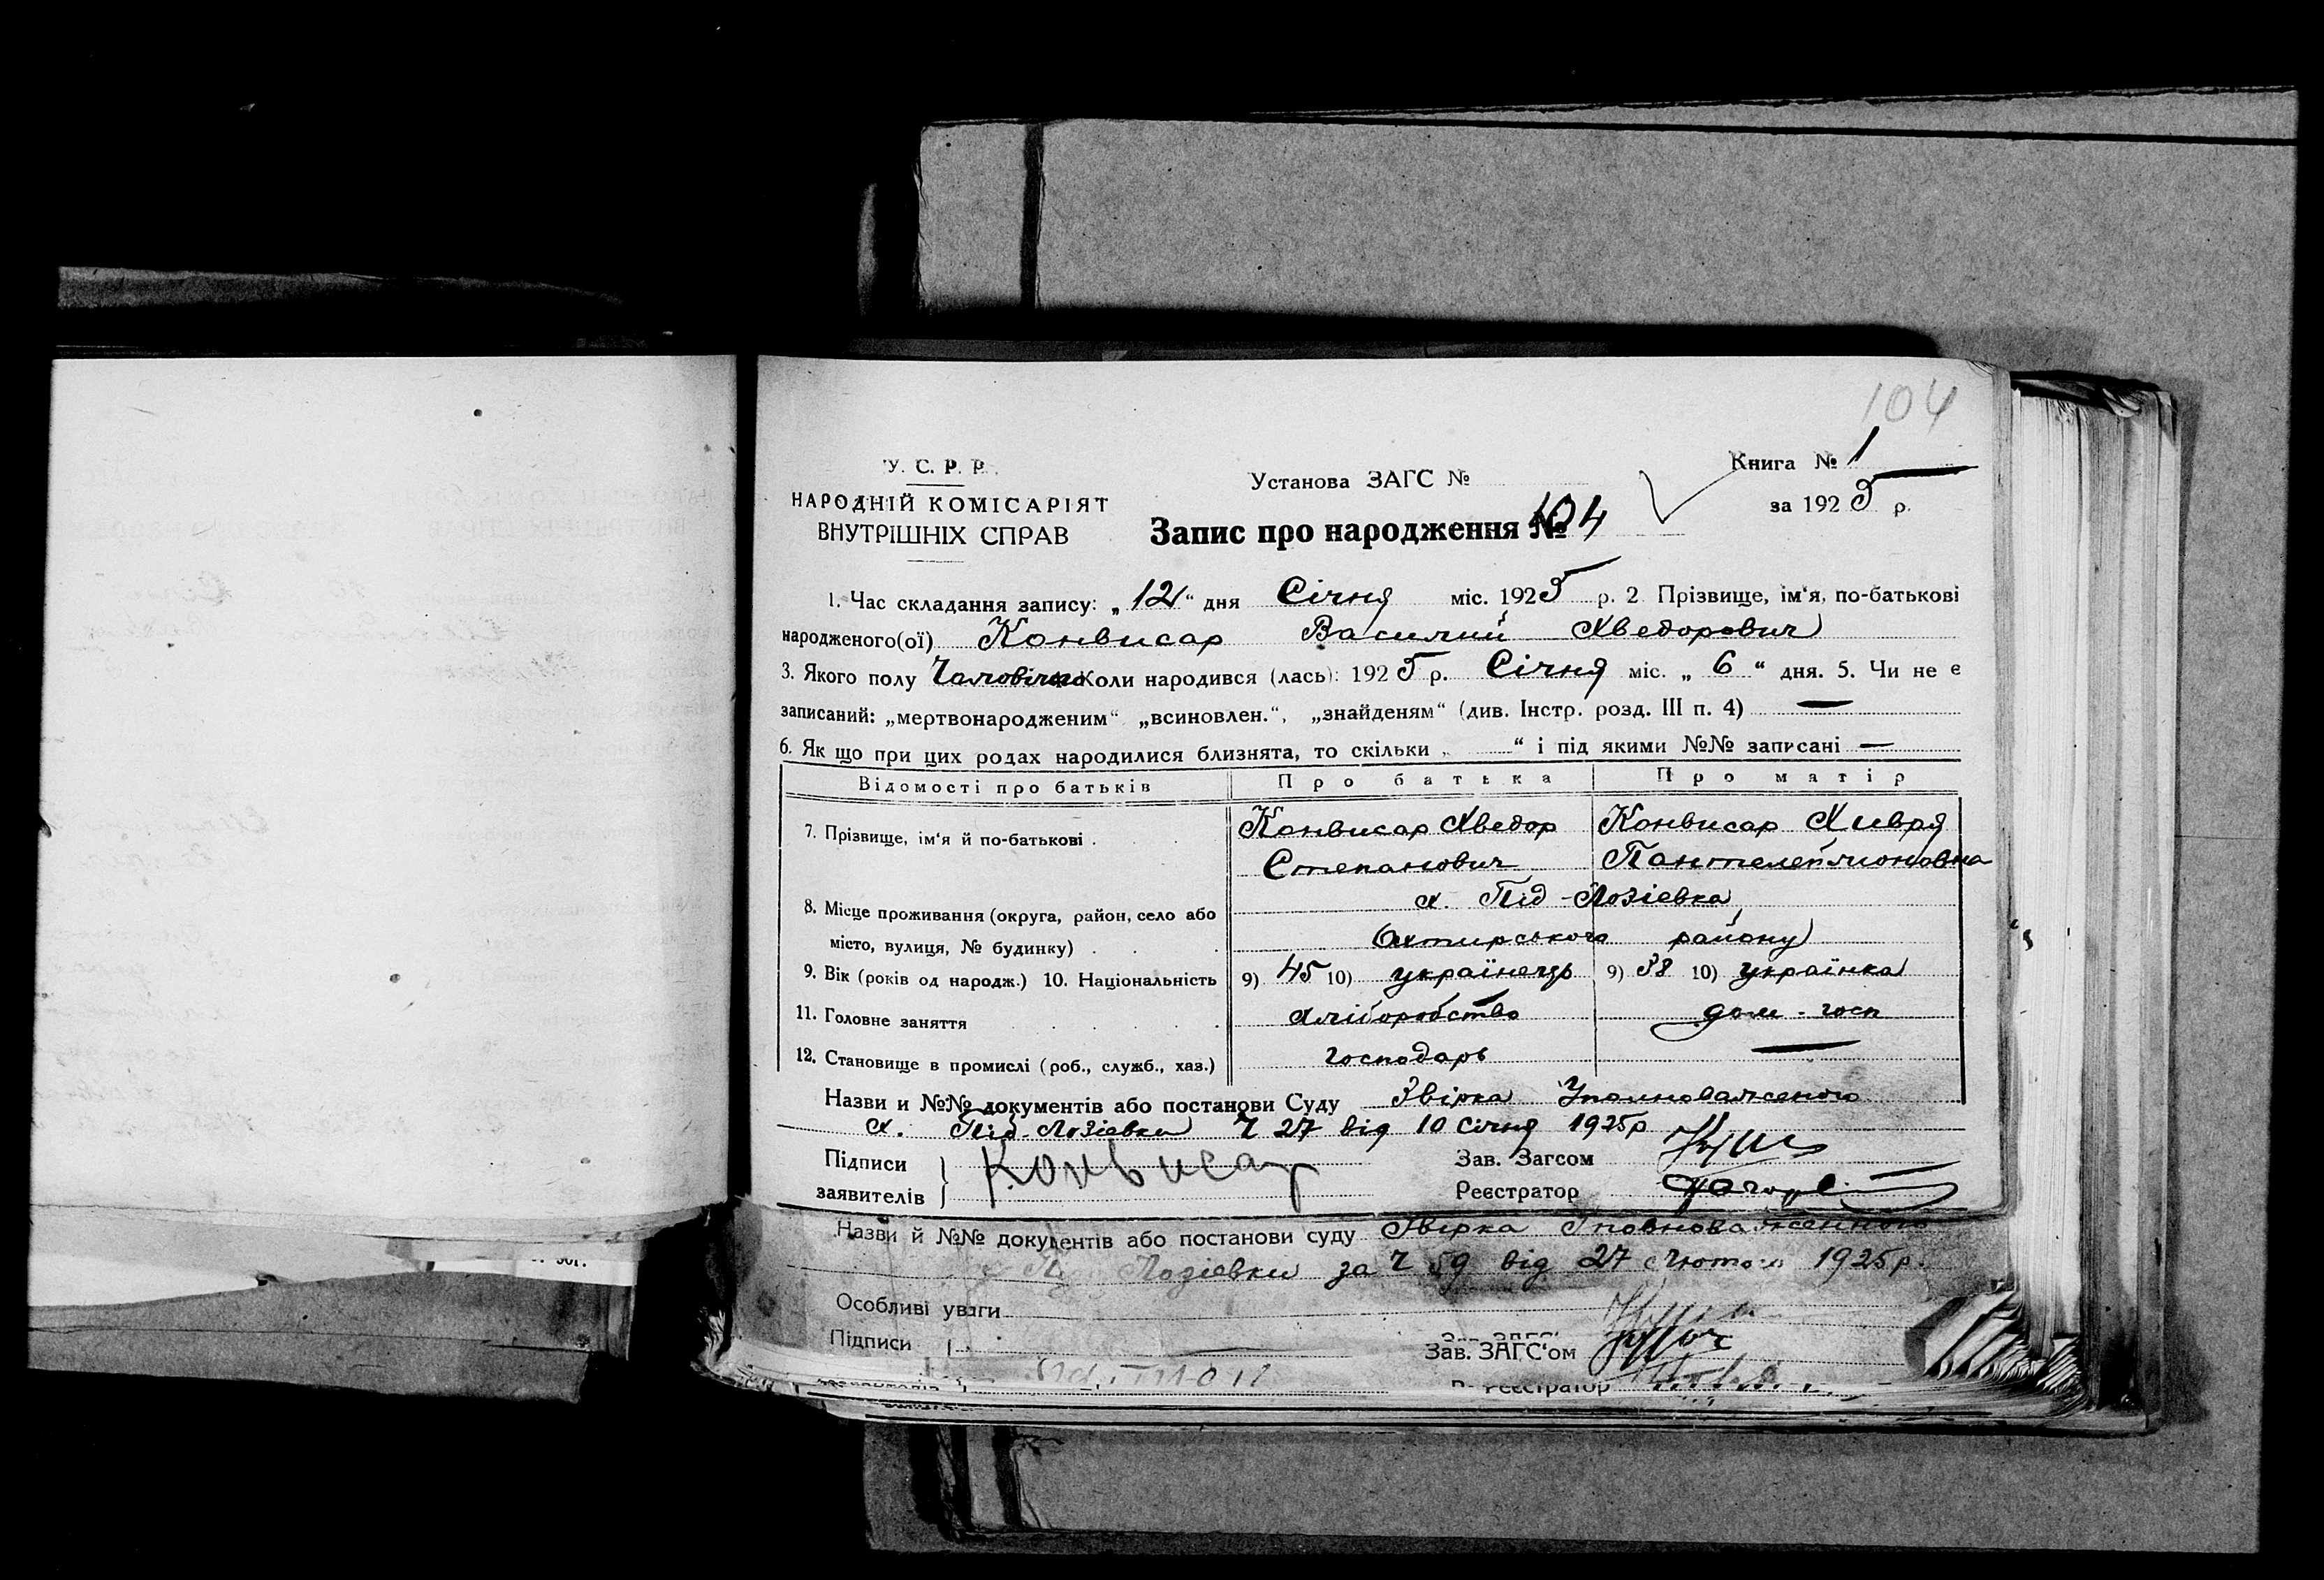 104
У. С. Р. Р.
НАРОДНІЙ КОМІСАРІЯТ
ВНУТРІШНІХ СПРАВ
Установа ЗАГС №
Книга № 1
за 1925 р.
Запис про народження № 104
1. Час складання запису: „12“ дня Січня міс. 1925 р. 2 Прізвище, ім‘я, по-батькові
народженого(ої) Конвисар Василий Хведорович
3. Якого полу Чоловічого Коли народився (лась): 1925 р. Січня міс. „ 6 “ дня. 5. Чи не є
записаний: „мертвонародженим“ „всиновлен.“, „знайденям“ (див. Інстр. розд. III п. 4) —
6. Як що при цих родах народилися близнята, то скільки „ “ і під якими №№ записані —
Відомості про батьків Про батька Про матір
7. Прізвище, ім‘я й по-батькові . Конвисар Хведор Конвисар Хивря
Степанович Пантелеймоновна
8. Місце проживання (округа, район, село або х. Під-Лозіевка
місто, вулиця, № будинку) . . Охтирського району
9. Вік (років од народж.) 10. Національність 9) 45 10) українець 9) 38 10) українка
11. Головне заняття хліборобство дом-госп
12. Становище в промислі (роб., служб., хаз.) господарь —
Назви и №№ документів або постанови Суду Звірка Уполноваженого
х. Під-Лозіевки Ч 27 від 10 січня 1925р
Підписи Конвисар Зав. Загсом
заявителів Реєстратор
Назви й №№ документів або постанови суду Звірка Уповноваженного
Лозіевки за Ч 59 від 27 Лютого 1925р.
Особливі уваги
Підписи Зав. ЗАГС‘ом
Реєстратор